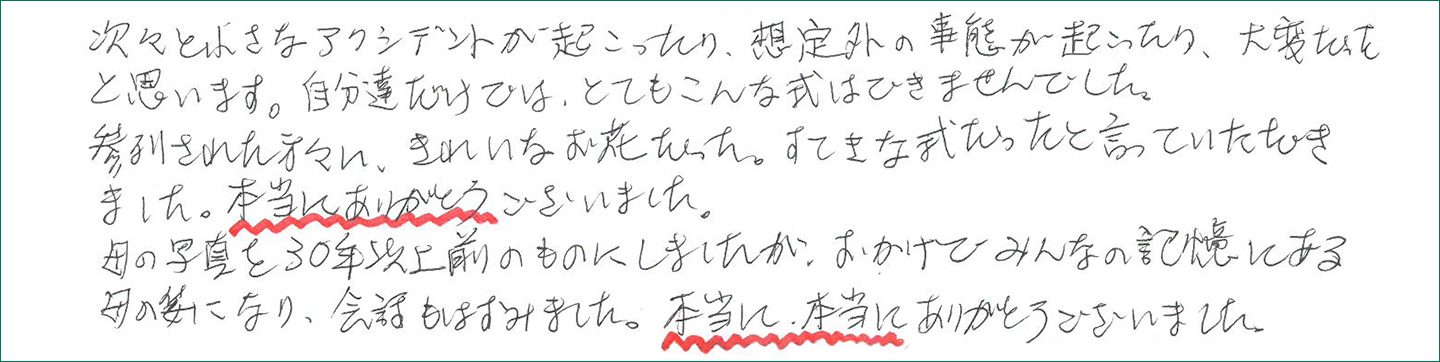 次々と小さなアクシデントが起こったり、想定外の事態が起こったり、大変だった
と思います。自分達だけでは、とてもこんな式はできませんでした。
参列された方々に、きれいなお花だった。すてきな式だったと言っていただき
ました。本当にありがとうございました。
母の写真を30年以上前のものにしましたが、おかげでみんなの記憶にある
母の姿になり、会話もはずみました。本当に、本当にありがとうございました。